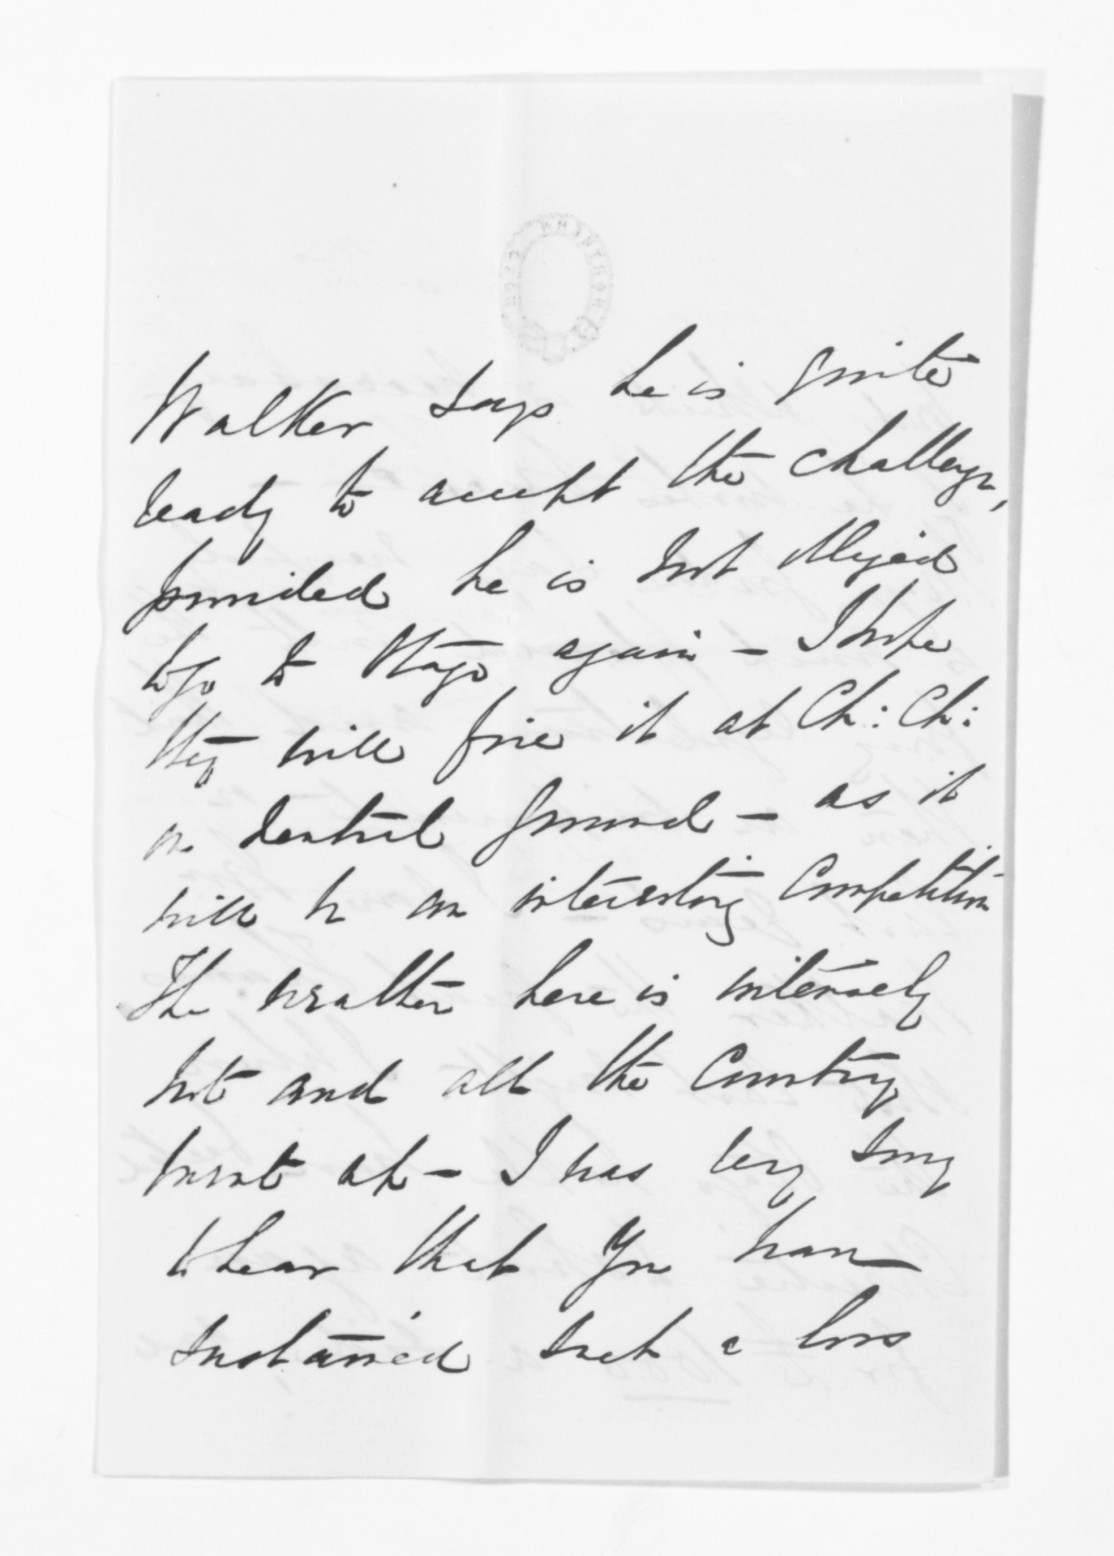 Walker says he is quite
ready to accept the challenge,
provided he is not obliged
to go to Otago again - I hope
they will fire it at Ch: Ch:
on neutral ground - as it
will be an interesting competition
The weather here is intensely
hot and all the country
burnt up - I was very sorry
to hear that you have
sustained such a loss